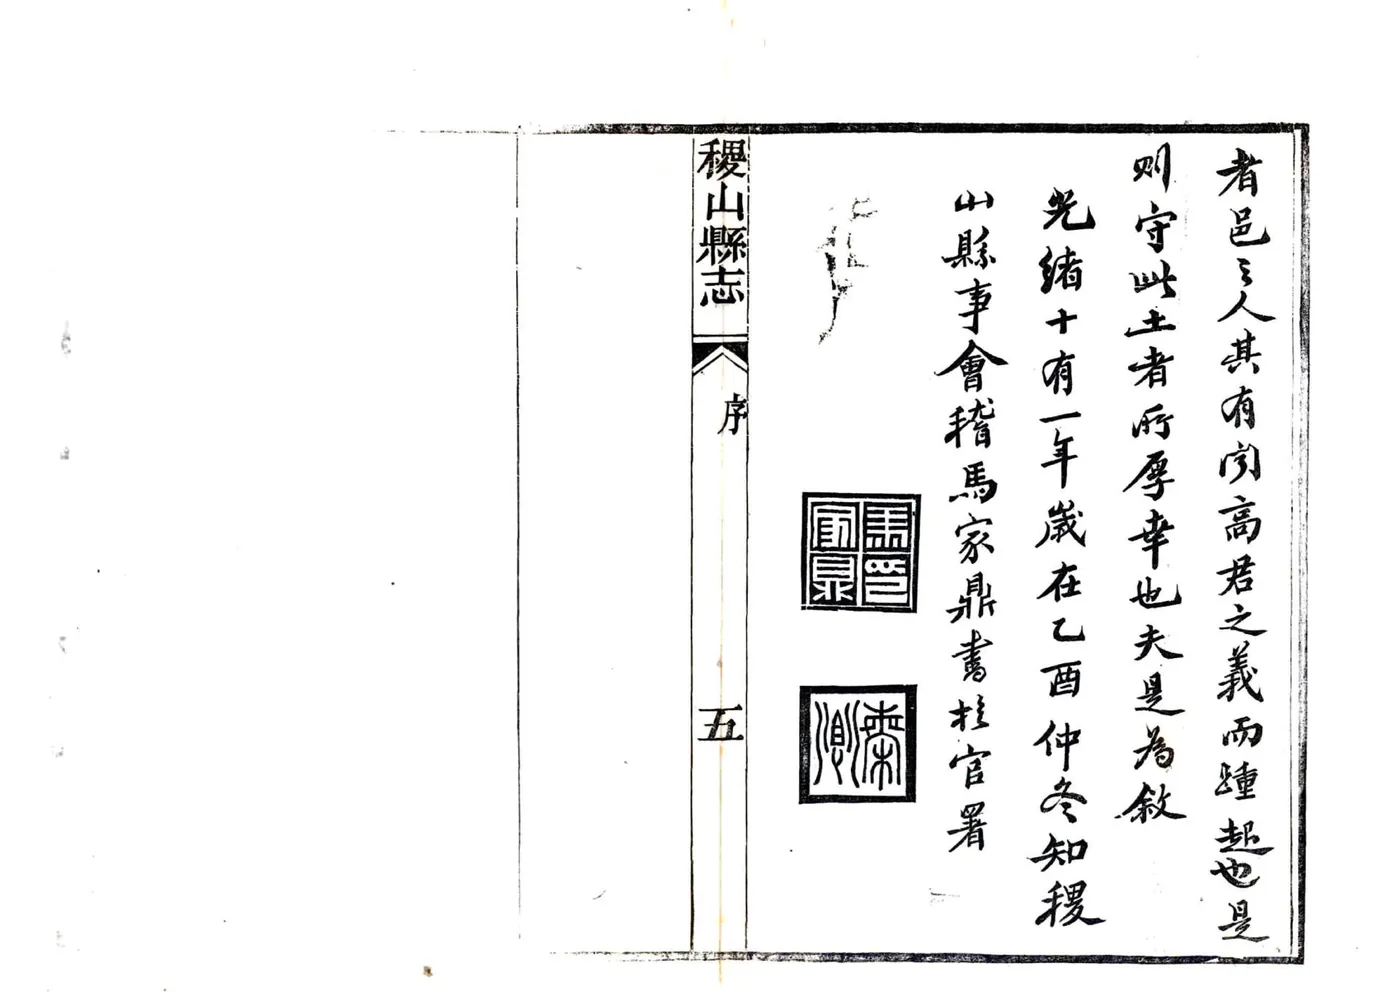 者邑之人其有聞高君之義而踵起也是
則守此土者所厚幸也夫是為敘
光緒十有一年歲在乙酉仲冬知稷
山縣事會稽馬家鼎書於官署
馬家鼎印
稷山縣志
序
五